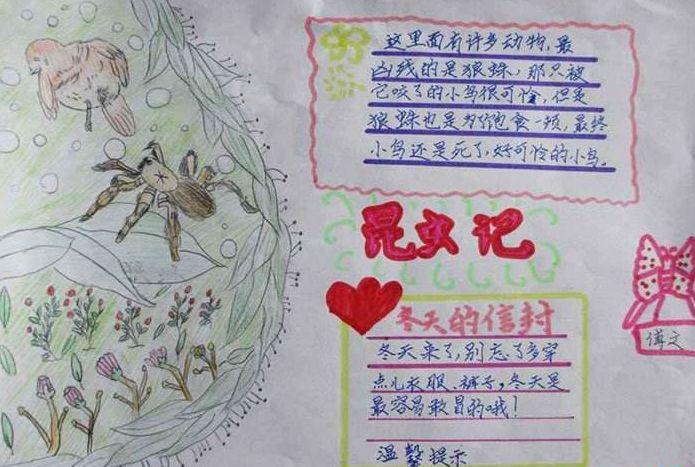 这里面有许多动物,最
凶残的是狼蛛,那只被
它咬了的小鸟很可怜,但是
狼蛛也是为饱食一顿,最终
小鸟还是死了,好可怜的小鸟。
昆虫记
冬天的信封
冬天来了,别忘了多穿
点儿衣服、裤子,冬天是
最容易敢冒的哦!
温馨提示
傅文